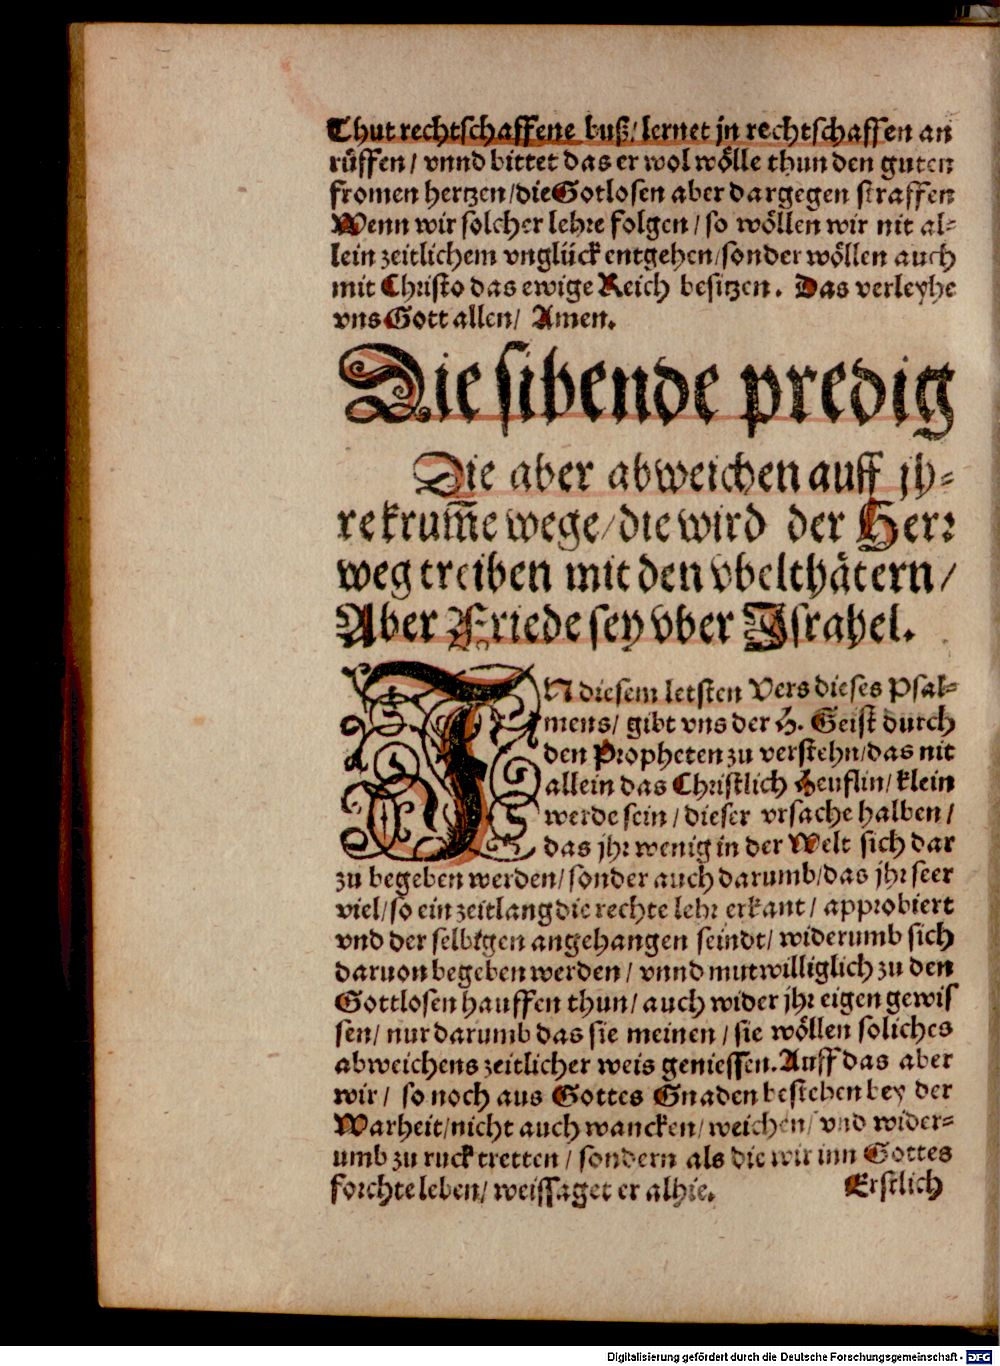 Thut rechtschaffene buß/ lernet jn rechtschaffen an
rüffen/ vnnd bittet das er wol wölle thun den guten
fromen hertzen/die Gotlosen aber dargegen straffen
Wenn wir solcher lehre folgen/ so wöllen wir nit al-
lein zeitlichem vnglück entgehen/sonder wöllen auch
mit Christo das ewige Reich besitzen. Das verleyhe
vns Gott allen/ Amen.
Die sibende predig
Die aber abweichen auff jh-
re krum̃e wege/die wird der Herr
weg treiben mit den vbelthätern/
Aber Friede sey vber Israhel.
IN diesem letsten Vers dieses Psal-
mens/ gibt vns der H. Geist durch
den Propheten zu verstehn/das nit
allein das Christlich Heuflin/ klein
werde sein/ dieser vrsache halben/
das jhr wenig in der Welt sich dar
zu begeben werden/ sonder auch darumb/das jhr seer
viel/so ein zeitlang die rechte lehr erkant/ approbiert
vnd der selbigen angehangen seindt/ widerumb sich
daruon begeben werden/ vnnd mutwilliglich zu den
Gottlosen hauffen thun/ auch wider jhr eigen gewis
sen/ nur darumb das sie meinen/ sie wöllen soliches
abweichens zeitlicher weis geniessen. Auff das aber
wir/ so noch aus Gottes Gnaden bestehen bey der
Warheit/nicht auch wancken/ weichen/ vnd wider-
umb zu ruck tretten/ sondern als die wir inn Gottes
forchte leben/ weissaget er alhie.
Erstlich
Digitalisierung gefördert durch die Deutsche Forschungsgemeinschaft - DFG